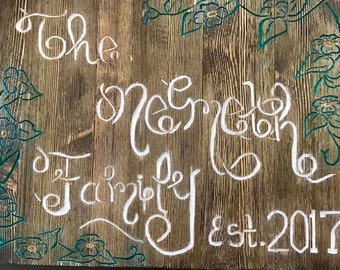 The
Nemeth
Family
Est. 2017